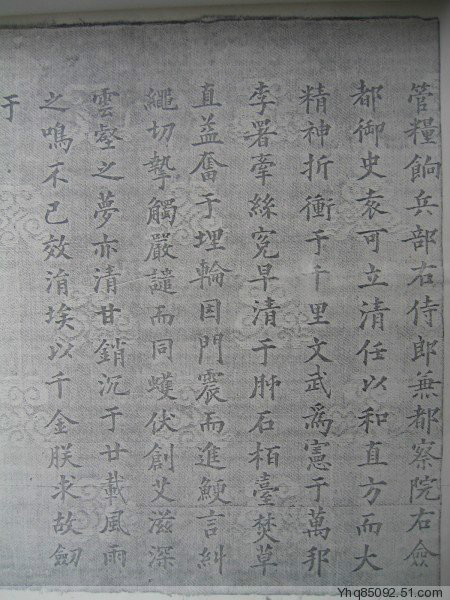 管糧餉兵部右侍郎兼都察院右僉
都御史袁可立清任以和直方而大
精神折衝于千里文武為憲于萬邦
李署牽絲冤早清于肺石栢臺焚草
直益奮于埋輪因門震而進鯁言糾
繩切摯觸嚴譴而同蠖伏創艾滋深
雲壑之夢亦清甘銷沉于廿載風雨
之鳴不已效涓埃以千金朕求故劎
于
Yhq85092.51.com